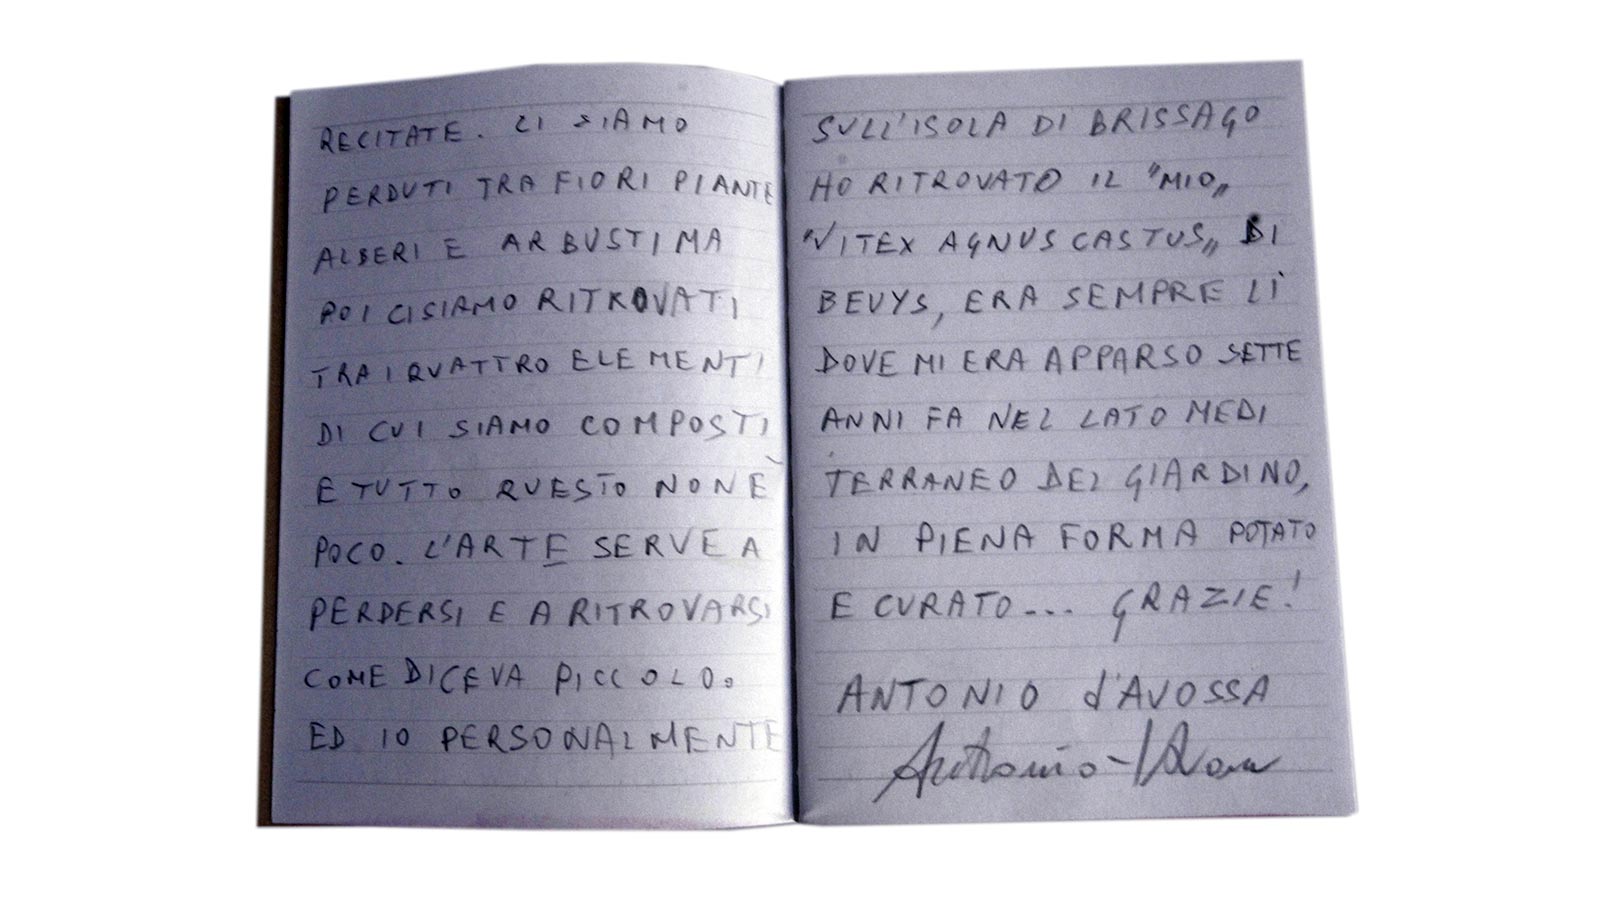 RECITATE. CI SIAMO
PERDUTI TRA FIORI PIANTE
ALBERI E ARBUSTI MA
POI CI SIAMO RITROVATI
TRA I QUATTRO ELEMENTI
DI CUI SIAMO COMPOSTI
E TUTTO QUESTO NON È
POCO. L'ARTE SERVE A
PERDERSI E A RITROVARSI
COME DICEVA PICCOLO.
ED IO PERSONALMENTE
SULL'ISOLA DI BRISSAGO
HO RITROVATO IL "MIO„
"VITEX AGNUS CASTUS„ DI
BEUYS, ERA SEMPRE LÌ
DOVE MI ERA APPARSO SETTE
ANNI FA NEL LATO MEDI
TERRANEO DEL GIARDINO,
IN PIENA FORMA POTATO
E CURATO... GRAZIE!
ANTONIO d'AVOSSA
Antonio d'Avossa